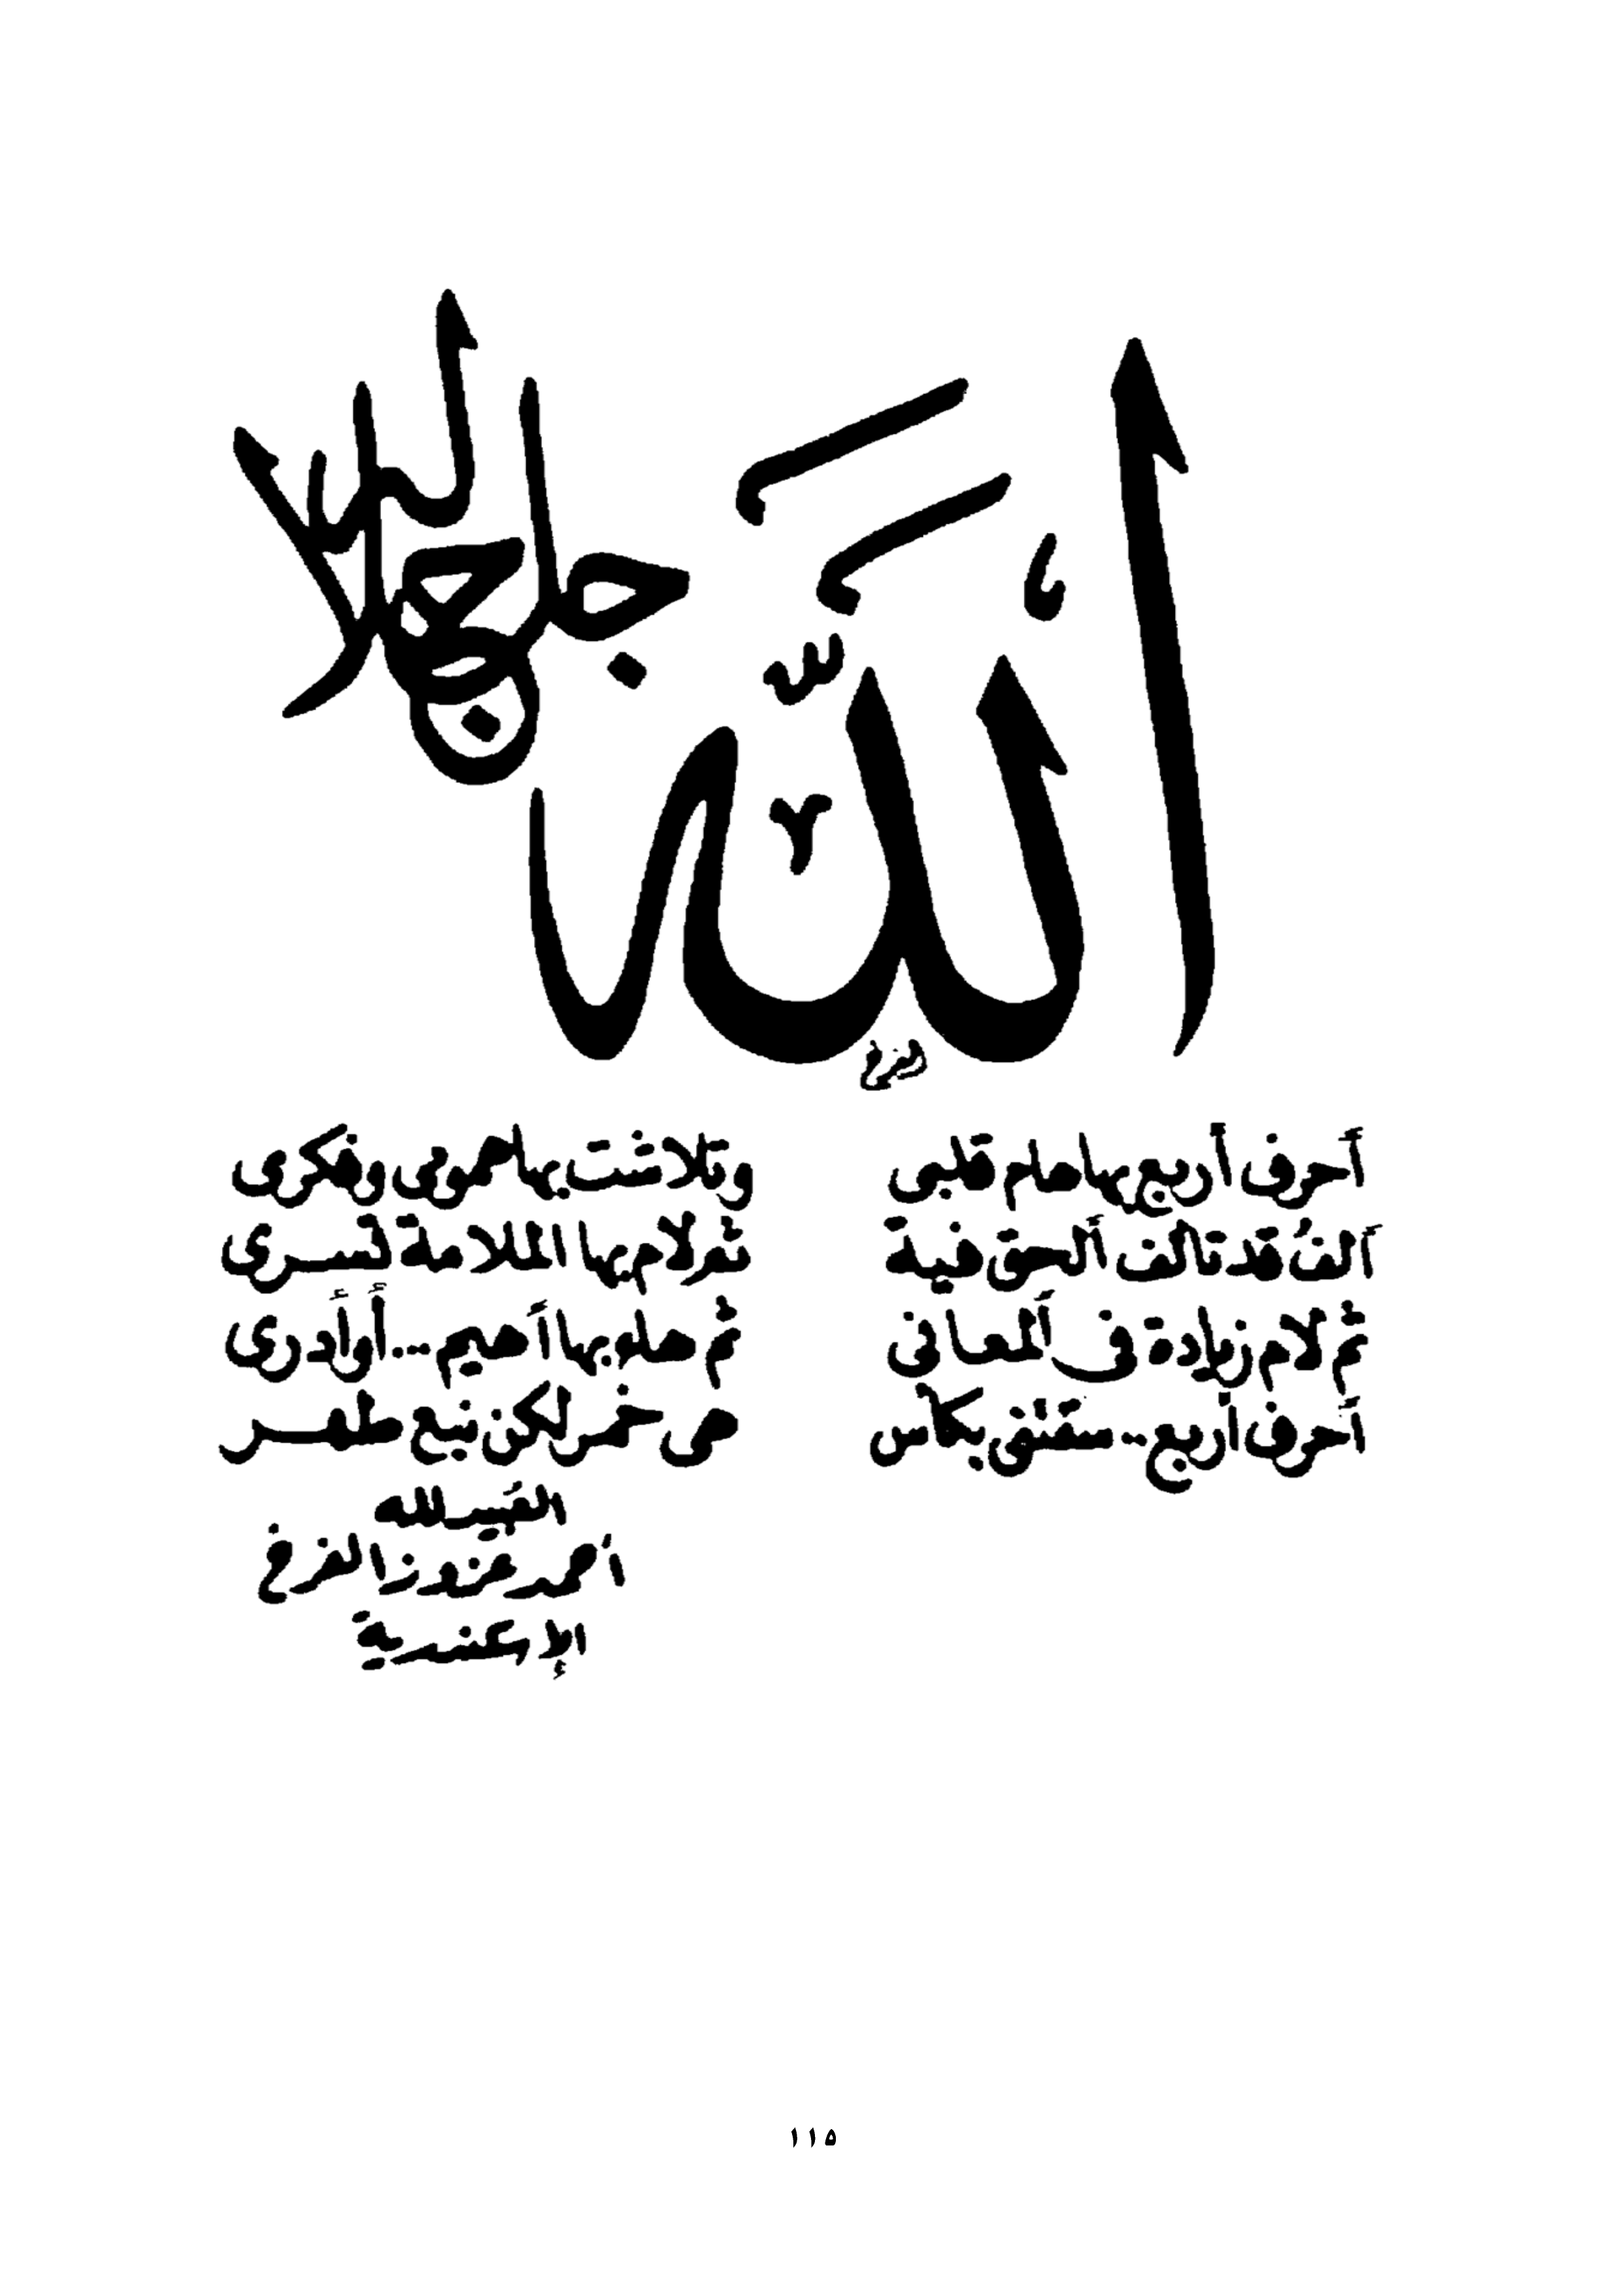 الله جل جلاله
أحرف أربع بها هام قلبى وتلاشت بها همومى وفكرى
ألف قد تألف الحق فيه ثم لام بها الملامة تسرى
ثم لام زيادة فى المعانى ثم هاء بها أهيم .. أو أدرى
أحرف أربع .. ستقتنى بكأس من خمر لكن نبع طهر
العبد لله
أحمد
الإسكندرية
١١٥